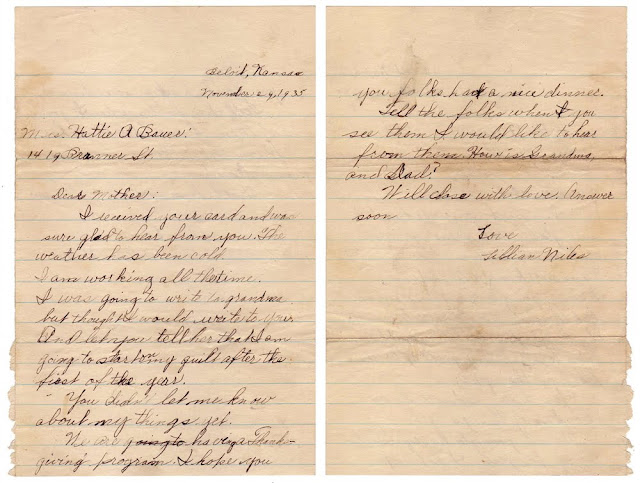 Beloit, Kansas
November 29, 1935
Mrs. Hattie A Bauer:
1419 Branner St
Dear Mother:
I received your card and was
sure glad to hear from you. The
weather has been cold.
I am working all the time.
I was going to write to grandma
but thought I would write to your
And let you tell her that I am
going to start on my quilt after the
first of the year.
You didn't let me know
about my things yet.
We are going to having a Thank-
giving program. I hope you
you folks had a nice dinner.
Tell the folks when you
see them I would like to hear
from them. How is Grandma,
and Dad?
Will close with love. Answer
soon
Love
Lillian Niles